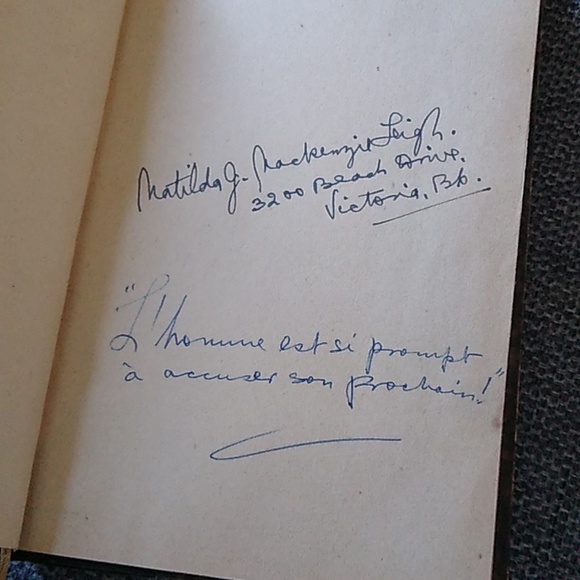 Matilda J. Mackenzie Leigh.
3200 Beach Drive.
Victoria, Bb.
"L'homme est si prompt
à accuser son prochain!"